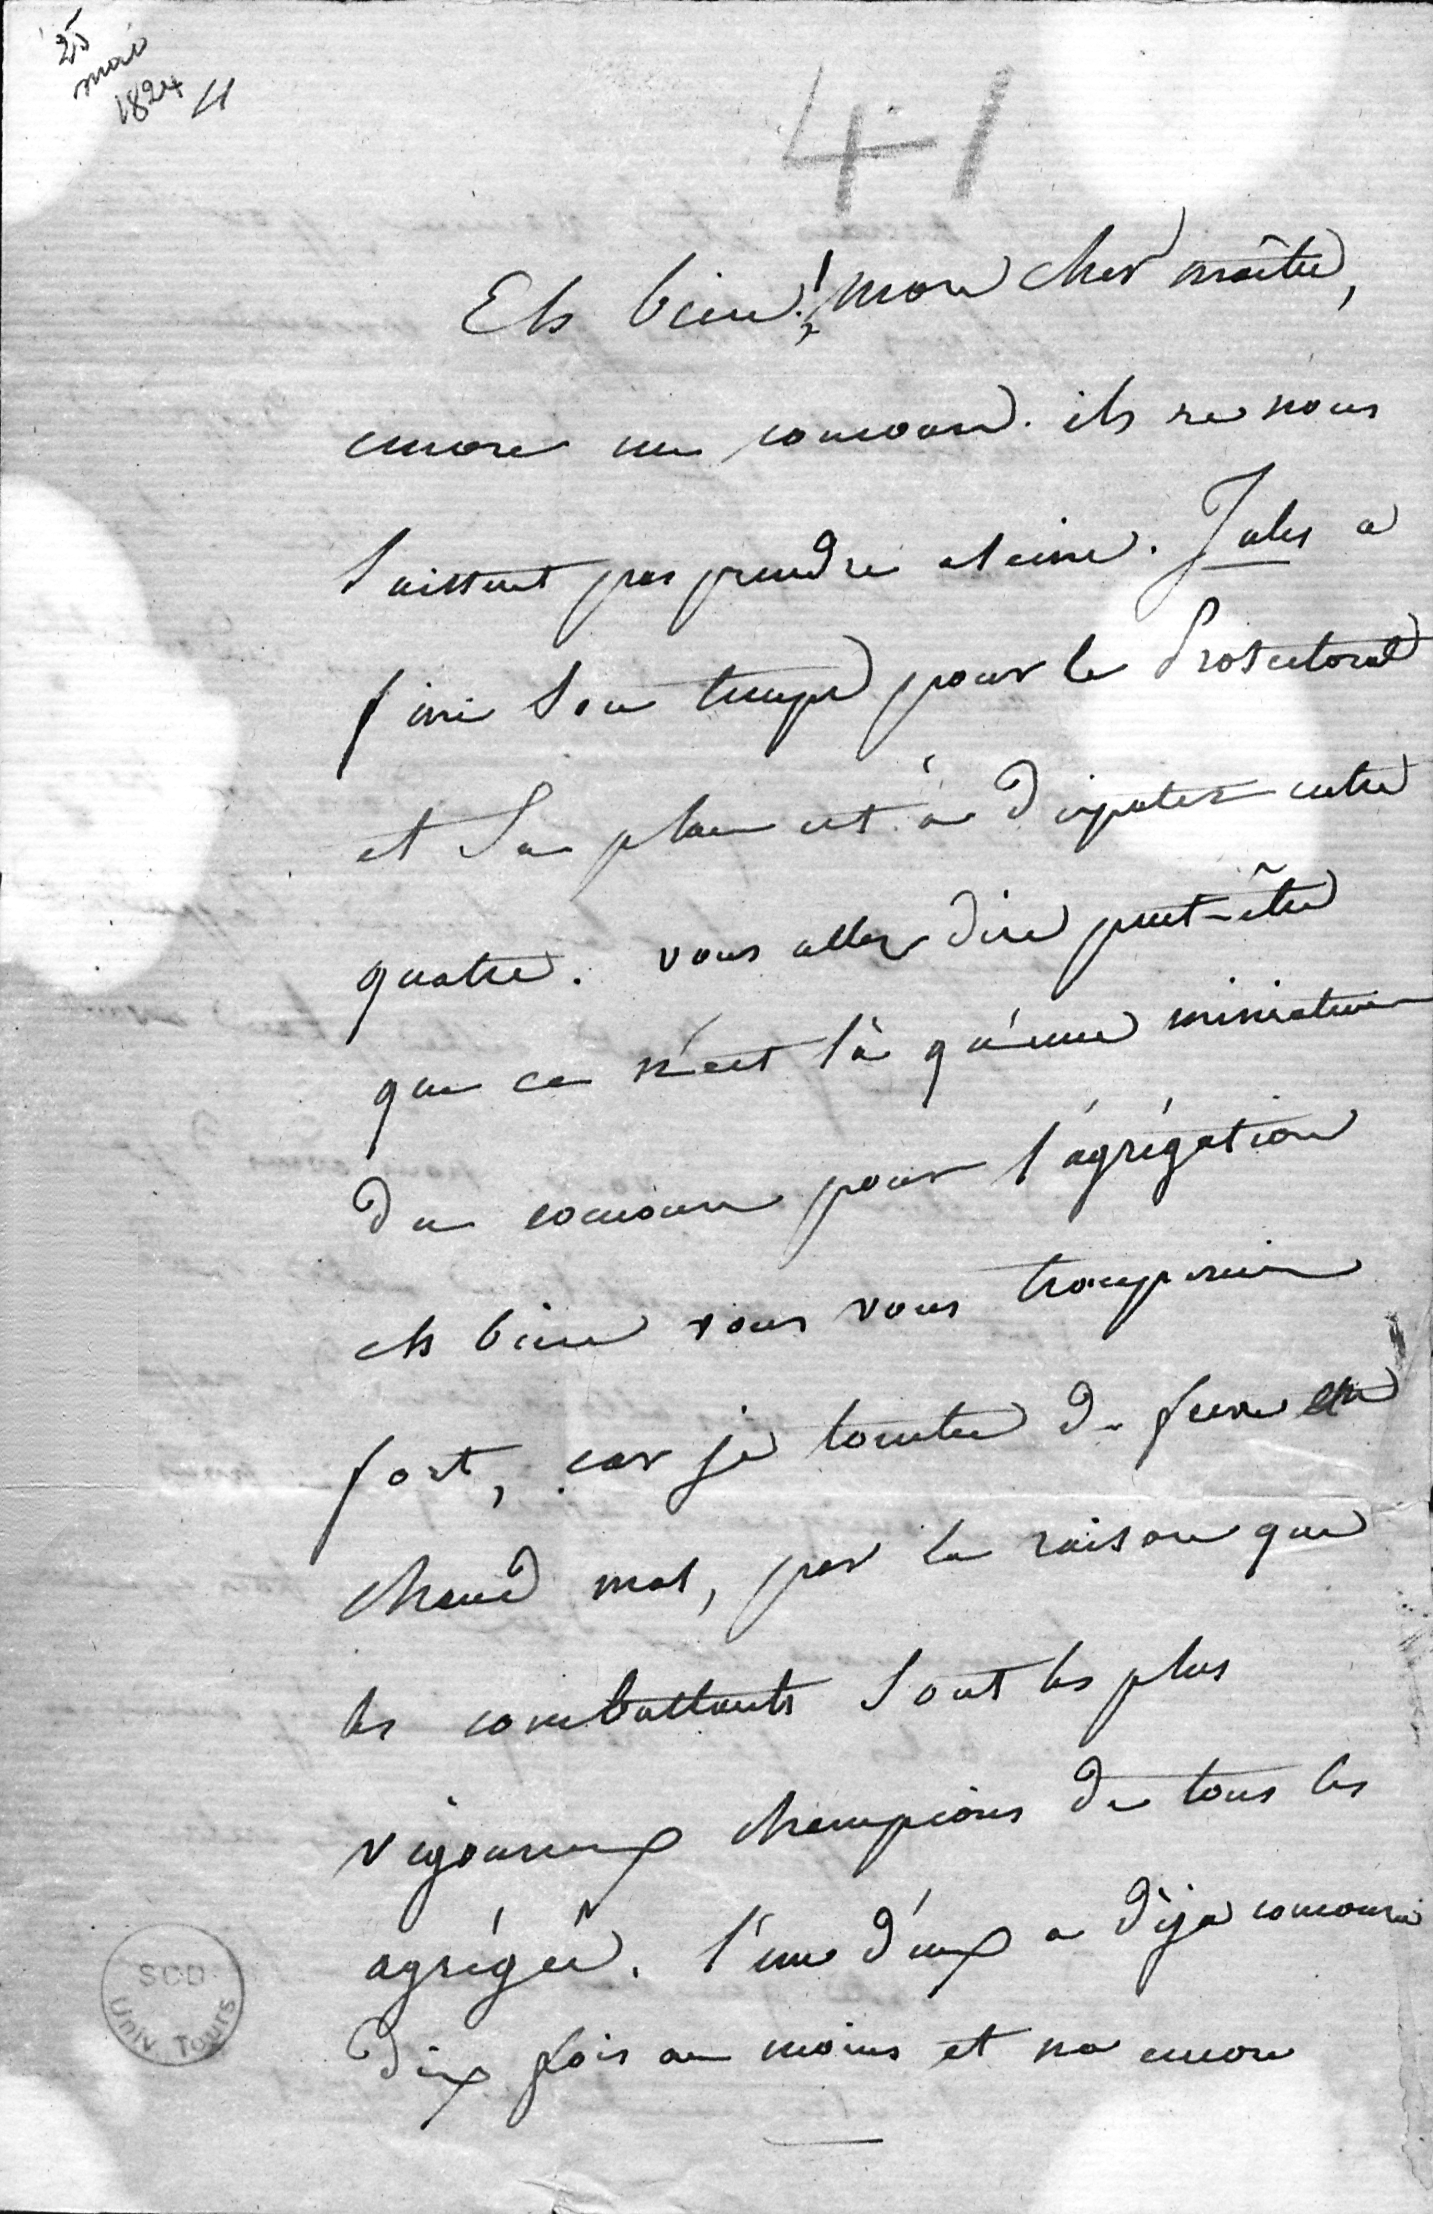 25
mai
1824
41
Eh bien! mon cher maître,
encore un concours. ils ne nous
laissent pas prendre aleine. Jules a
fini son temps pour le Prosectorat
et sa place est à disputer entre
quatre. vous allez dire peut-être
que ce n'est là qu'une miniature
du concours pour l'agrégation
eh bien vous vous tromperiez
fort, car je tombe de fievre en
chaud mal, par la raison que
les combattants sont les plus
vigoureux champions de tous les
agrégés. l'un d'eux a déja concouru
dix fois au moins et n'a encore
SCD
Univ. Tours